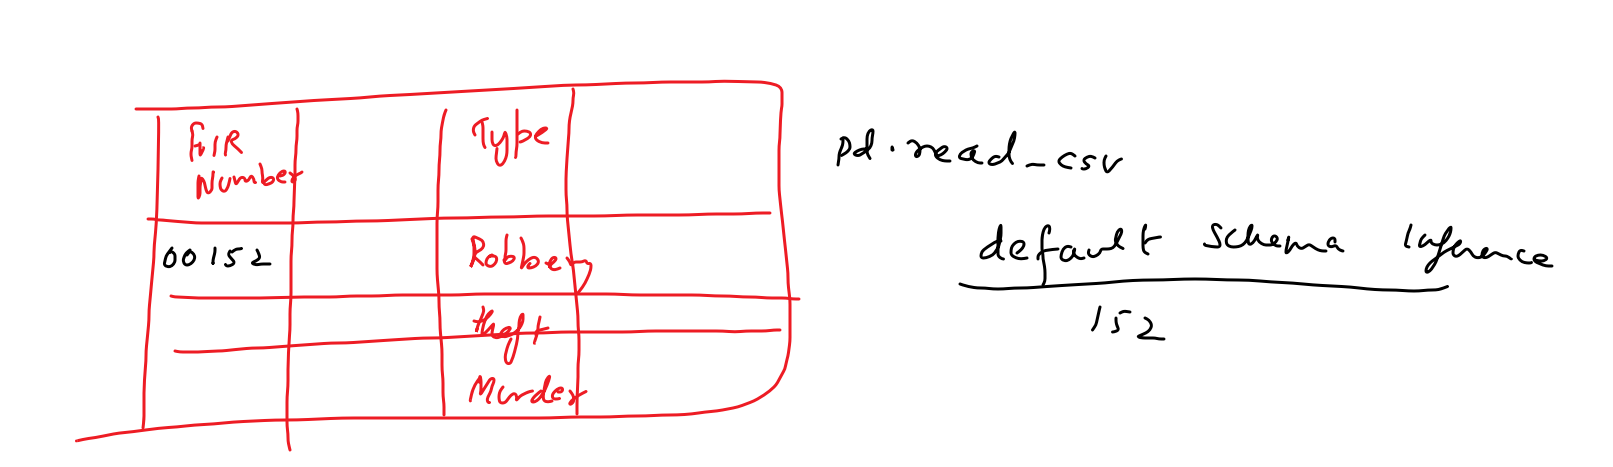 FIR
Number
Type
00152
Robbery
theft
Murder
pd.read_csv
default schema Inference
152